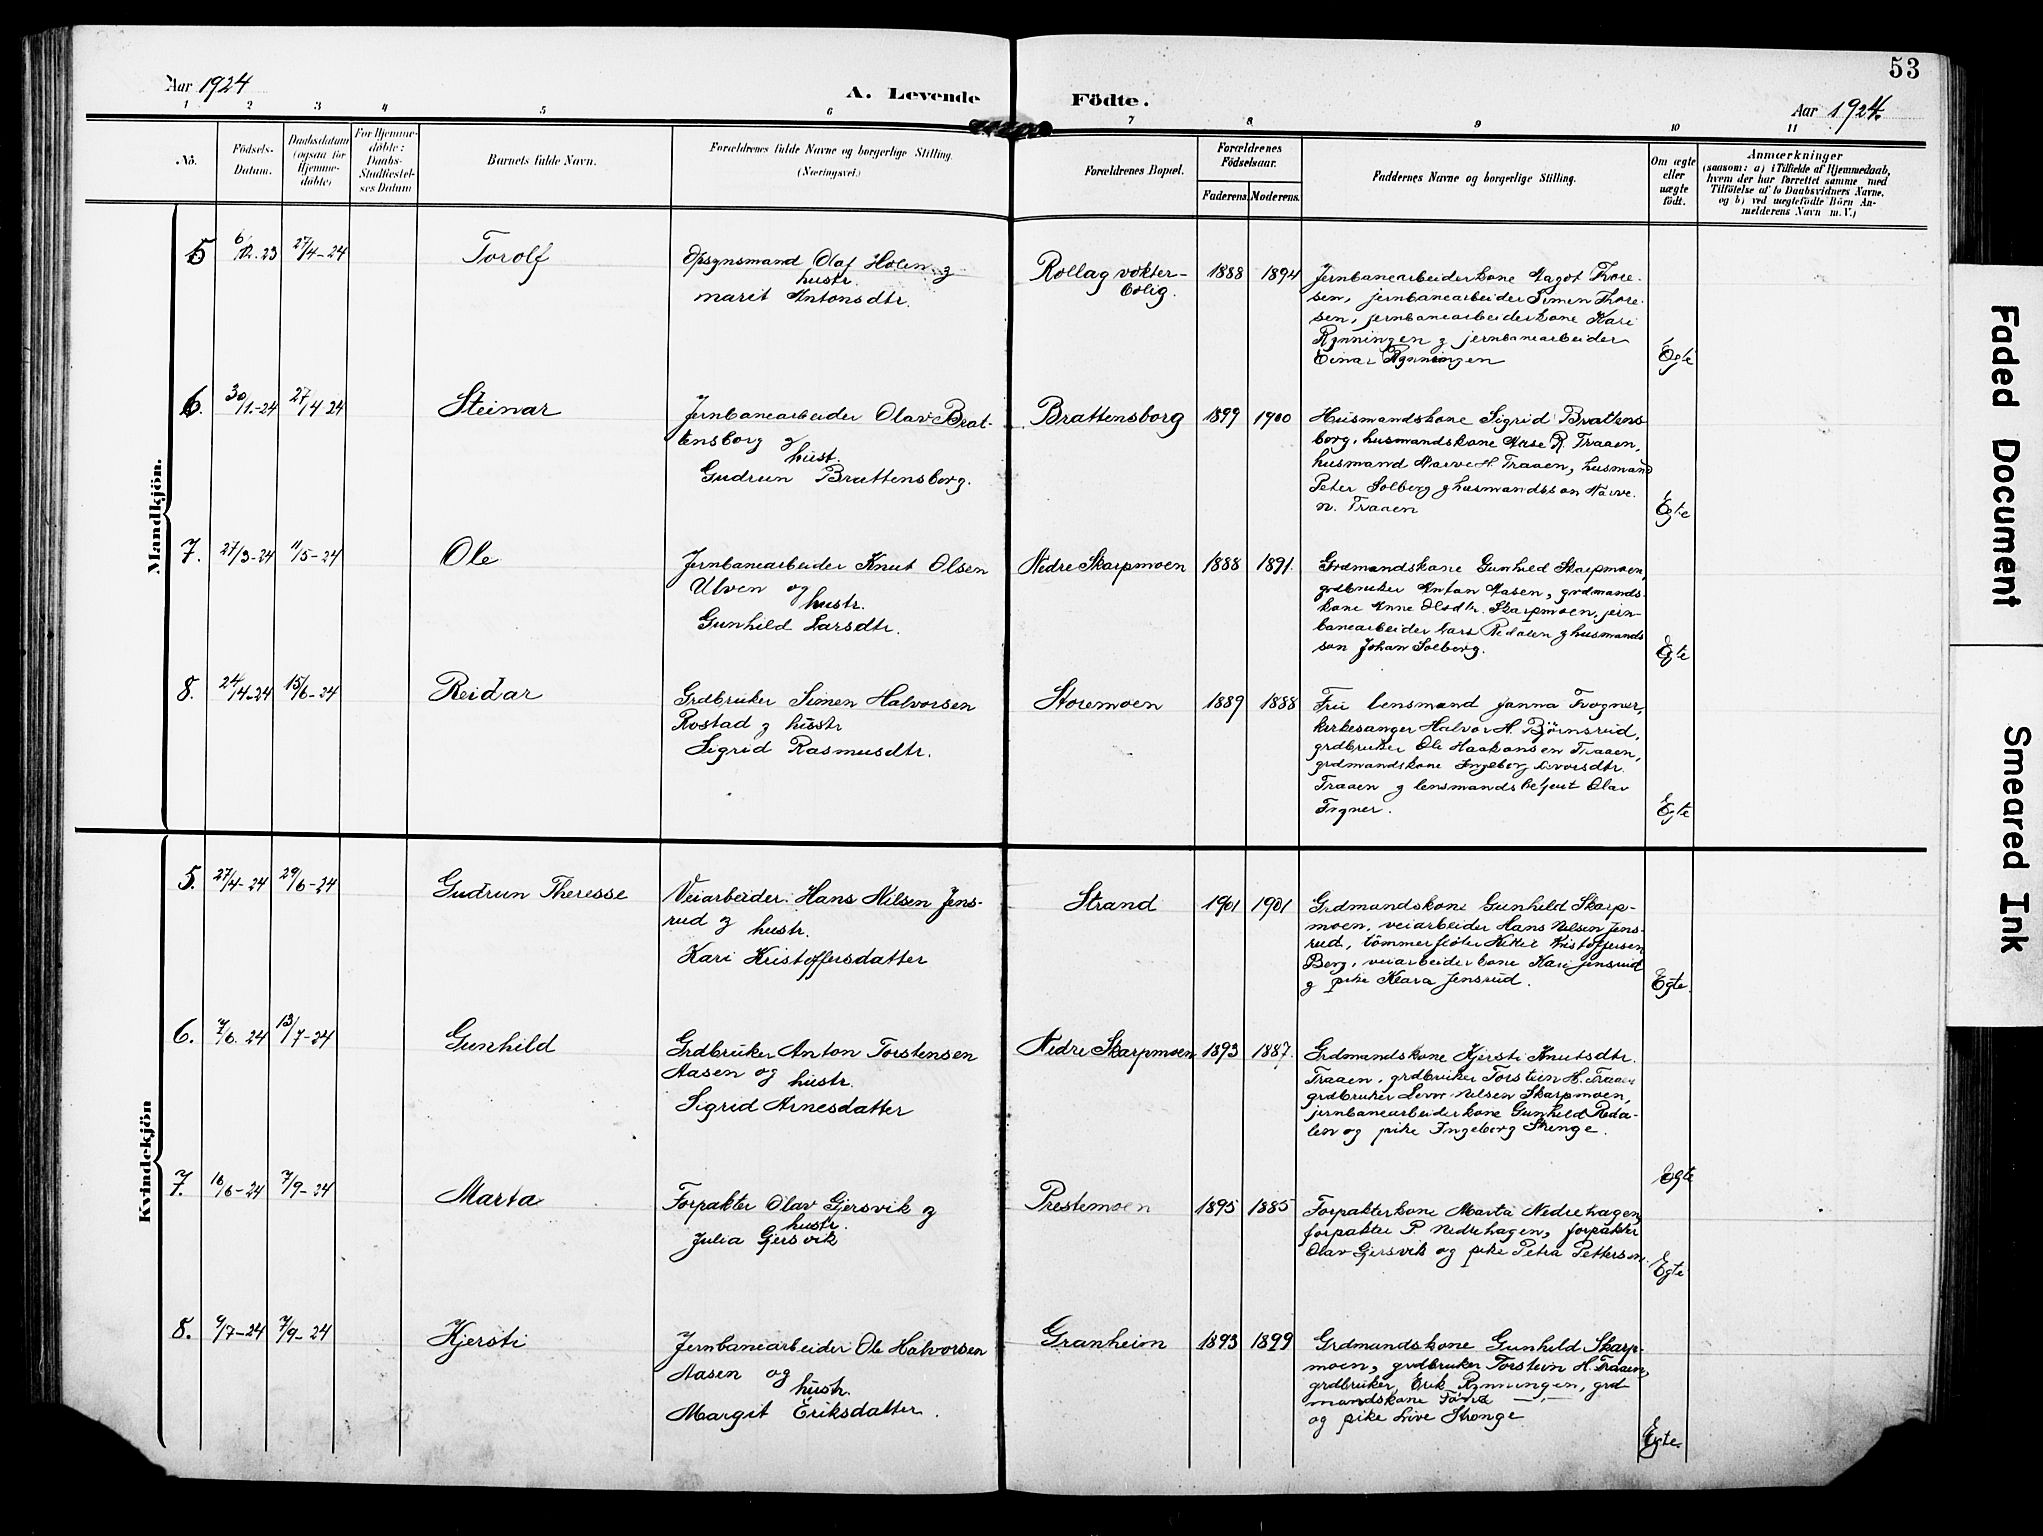 53
Aar 1924
A. Levende Födte.
Aar 1924.
1 2 3 4 5 6 7 8. 9 10 11
No.
Födsels-
Datum.
Daabsdatum
(ogsaa for
Hjemme-
döbte)
For Hjemme-
döbte:
Daabs-
Stadfæstel-
ses Datum
Barnets fulde Navn.
Forældrenes fulde Navne og borgerlige Stilling.
(Næringsvei.)
Forældrenes Bopæl.
Forældrenes
Födselsaar.
Faderens. Moderens.
Faddernes Navne og borgerlige Stilling.
Om ægte
eller
uægte
födt.
Anmærkninger
(saasom: a) i Tilfælde af Hjemmedaab,
hvem der har forrettet samme med
Tilföielse af to Daabsvidners Navne,
og b) ved uægtefödte Börn An-
melderens Navn m. V.)
Mandkjön.
5 6/12.23 27/4-24
Torolf
Opsynsmand Olaf Holen g
hustr.
marit Antonsdtr.
Rollag vokter-
bolig.
1888 1894
Jernbanearbeiderkone Aagot Thore-
sen, jernbanearbeider Simen Thore-
sen, jernbanearbeiderkone Kari
Rynningen g jernbanearbeider
Einar Rynningen
Egte
6. 30/1.-24 27/4 24
Steinar
Jernbanearbeider Olav Brat-
tensborg g
hust.
Gudrun Brattensborg.
Brattensborg
1899 1900
Husmandskone Sigrid Brattens
borg, husmandskone Aase R. Traaen,
husmand Narve H. Traaen, husmand
Peter Solberg g husmandsson Narve
N. Traaen
Egte
7. 27/3-24 11/5-24
Ole
Jernbanearbeider Knut Olsen
Ulven og
hustr.
Gunhild Larsdtr.
Nedre Skarpmoen
1888 1891.
Grdmandskone Gunhild Skarpmoen,
grdbruker Anton Aasen, grdmands-
kone Anne Olsdtr. Skarpmoen, jern-
banearbeider Lars Redalen g husmands
son Johan Solberg.
Egte
8. 24/4-24 15/6-24
Reidar
Grdbruker Simen Halvorsen
Rostad g hustr
Sigrid Rasmusdtr.
Storemoen
1889 1888
Fru lensmand Janna Frogner,
kirkesanger Halvor H. Björnsrud,
grdbruker Ole Haakonsen Traaen,
grdmandskone Ingeborg
Traaen g lensmandsbetjent Olav
Frogner.
Egte
Kvindekjön
5. 27/4-24 29/6-24
Gudrun Theresse
Veiarbeider Hans Nilsen Jens-
rud g hustr.
Kari Kristoffersdatter
Strand
1901 1901
Grdmandskone Gunhild Skarp-
moen, veiarbeider Hans Nilsen Jens-
rud, tömmerflöter Kristoffersen
Berg, veiarbeiderkone Kari Jensrud
g pike Klara Jensrud.
Egte.
6. 7/6. 24 13/7-24
Gunhild
Grdbruker Anton Torstensen
Aasen og hustr.
Sigrid Arnesdatter
Nedre Skarpmoen
1893 1887.
Grdmandskone Kjersti Knutsdtr.
Traaen, grdbruker Torstein H. Traaen
grdbruker Nilsen Skarpmoen,
jernbanearbeiderkone Gunhild Reda-
len og pike Ingeborg Stenge.
Egte
7. 16/6-24 7/9-24
Marta
Forpakter Olav Gjersvik g
hustr.
Julia Gjersvik
Prestemoen
1895 1885
Forpakterkone Marta Nedrehagen,
forpakter P. Nedrehagen, forpakter
Olav Gjersvik og pike Petra Pettersen.
Egte
8. 9/7-24 7/9-24
Kjersti
Jernbanearbeider Ole Halvorsen
Aasen og
hustr.
Margit Eriksdatter.
Granheim
1893 1899
Grdmandskone Gunhild Skarp-
moen, grdbruker Torstein H. Traaen,
grdbruker Erik Rynningen, grd
mandskone
og pike Live Stronge
Egte.
Faded Document
Smeared Ink